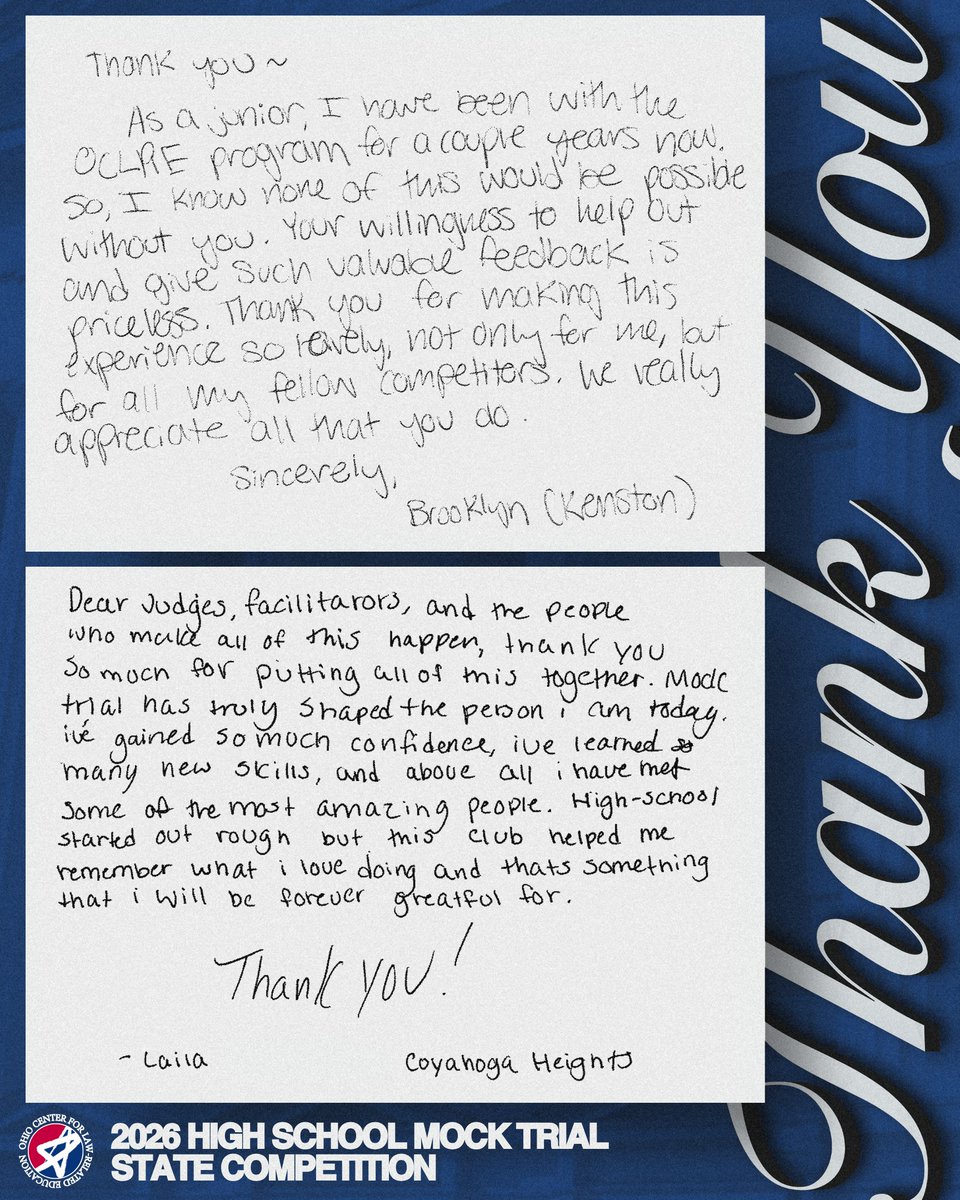 Thank you ~
As a junior, I have been with the
OCLRE program for a couple years now.
So, I know none of this would be possible
without you. Your willingness to help out
and give such valuable feedback is
priceless. Thank you for making this
experience so lovely, not only for me, but
for all my fellow competitors. We really
appreciate all that you do.
Sincerely,
Brooklyn (Kenston)
Dear Judges, facilitarors, and the people
who make all of this happen, thank you
so much for putting all of this together. Mock
trial has truly shaped the person i am today.
i've gained so much confidence, ive learned
many new skills, and above all i have met
some of the most amazing people. High-school
started out rough but this club helped me
remember what i love doing and thats something
that i will be forever greatful for.
Thank you!
- Laila
Coyahoga Heights
Thank You
OHIO CENTER FOR LAW-RELATED EDUCATION
2026 HIGH SCHOOL MOCK TRIAL
STATE COMPETITION